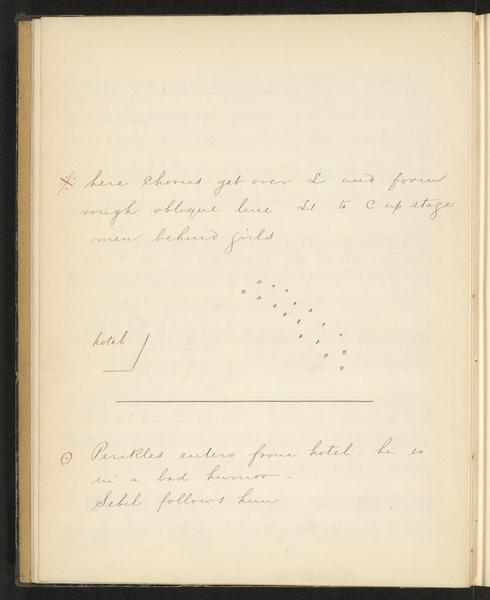 here Chorus get over L and form
rough oblique line L1 to C up stage
men behind girls
hotel
Perikles enters from hotel - he is
in a bad humor -
Sebil follows him